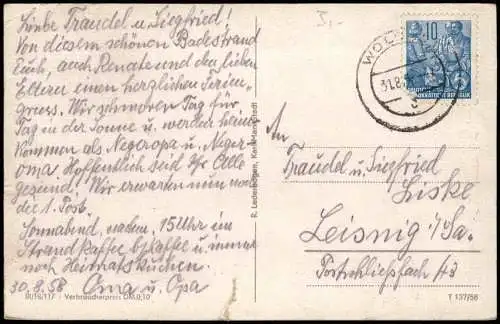 Liebe Traudel u. Siegfried!
Von diesem schönen Badestrand
Euch, auch Renate und den lieben
Eltern einen herzlichen Ferien-
gruss. Wir schmoren Tag für
Tag in der Sonne u. werden heim
kommen als Negeropa u. Neger-
oma. Hoffentlich seid Ihr Alle
gesund. Wir erwarten nun noch
die 1. Post.
Sonnabend, nachm. 15 Uhr im
Strandkaffee b/Kaffee u. immer
noch Heimatskuchen.
30.8.58 Oma u. Opa
III/16/117 Verbraucherpreis DM 0,10
R. Lederbogen, Karl-Marx-Stadt
3,-
10
31.8.
An
Traudel und Siegfried
Liske
Leisnig i/Sa.
Postschließfach 43
T 137/58